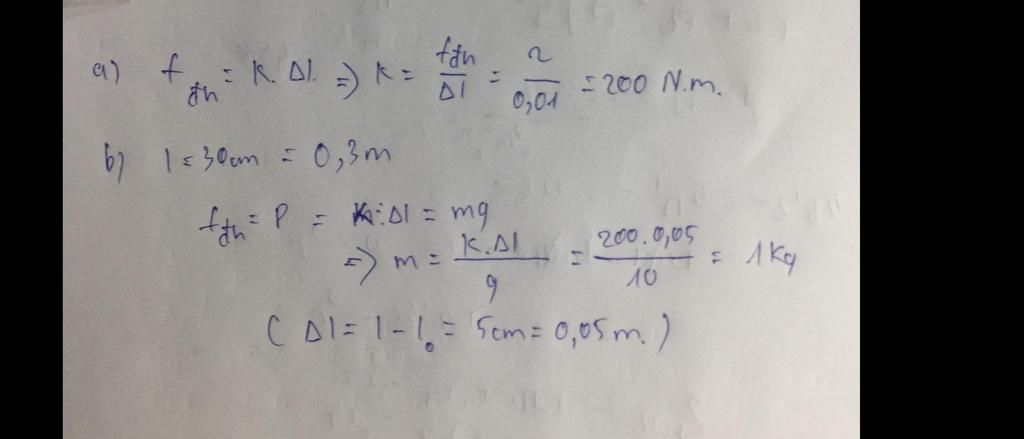 a) f đh = K.Δl. => K = fđh/Δl = 2/0,01 = 200 N.m.
b) l = 30cm = 0,3m
fđh = P = K.Δl = mg
=> m = K.Δl/g = 200.0,05/10 = 1Kg
( Δl = l - l₀ = 5cm = 0,05m. )